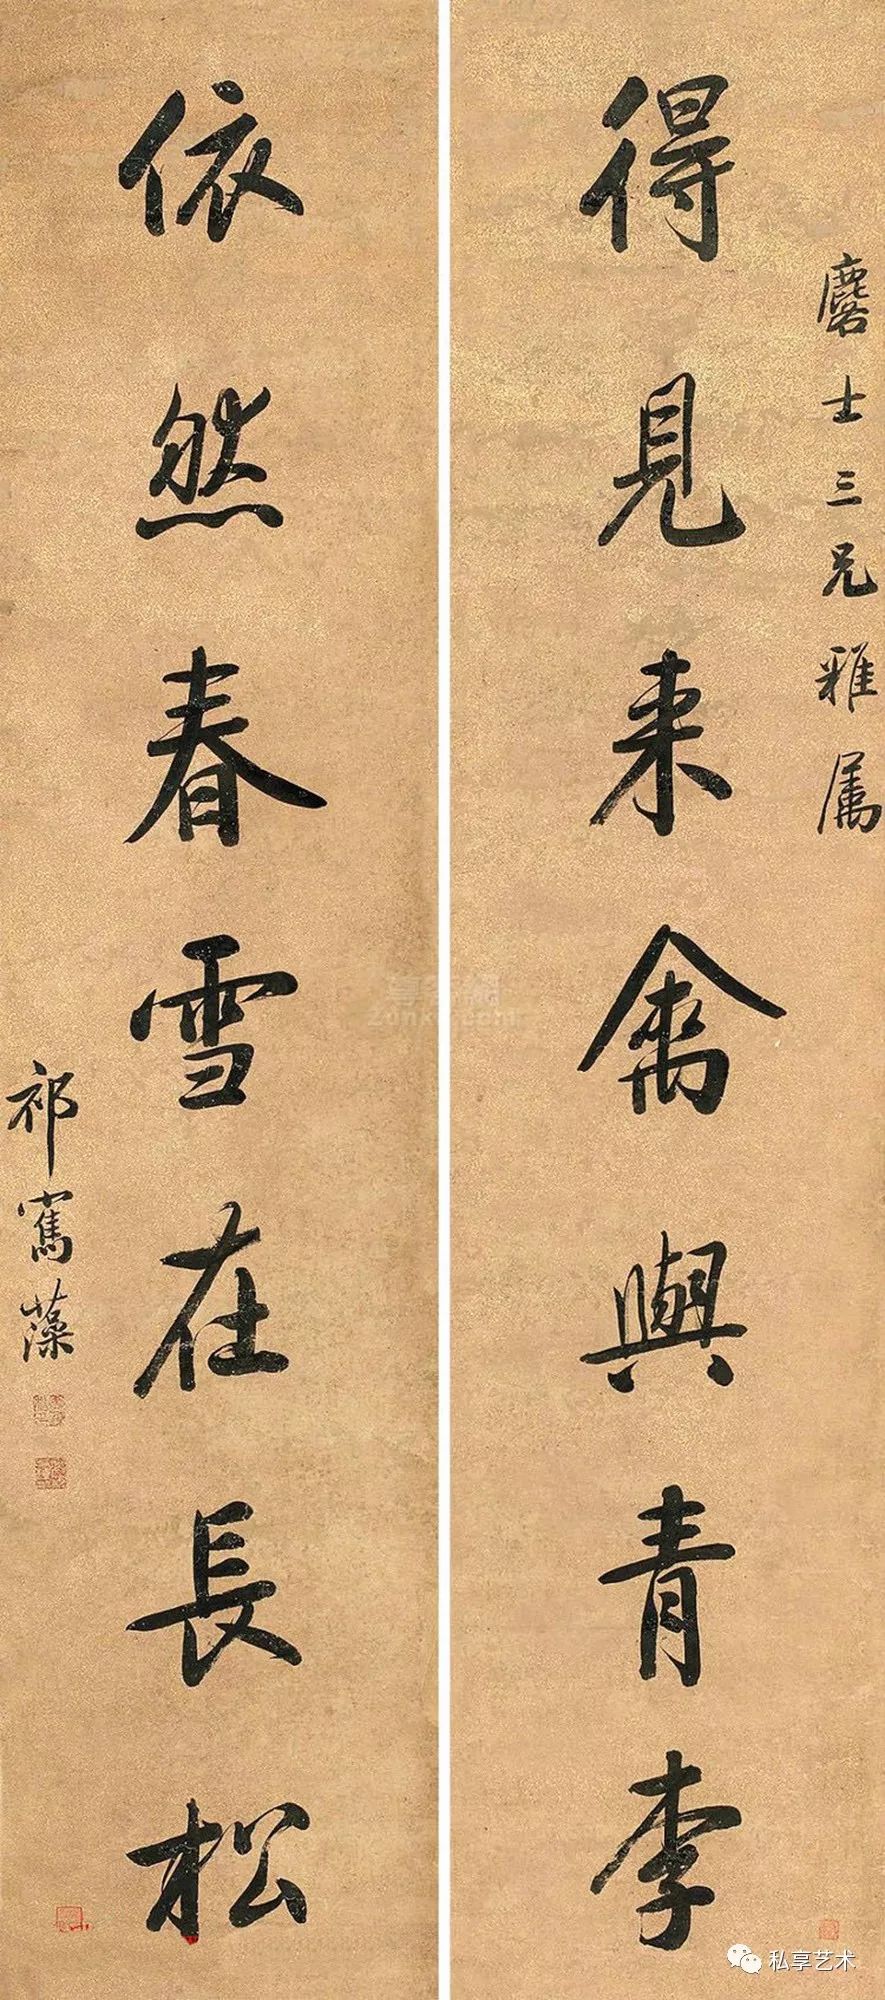 得見来禽與青李
磨士三兄雅属
依然春雪在長松
祁寯藻
私享艺术